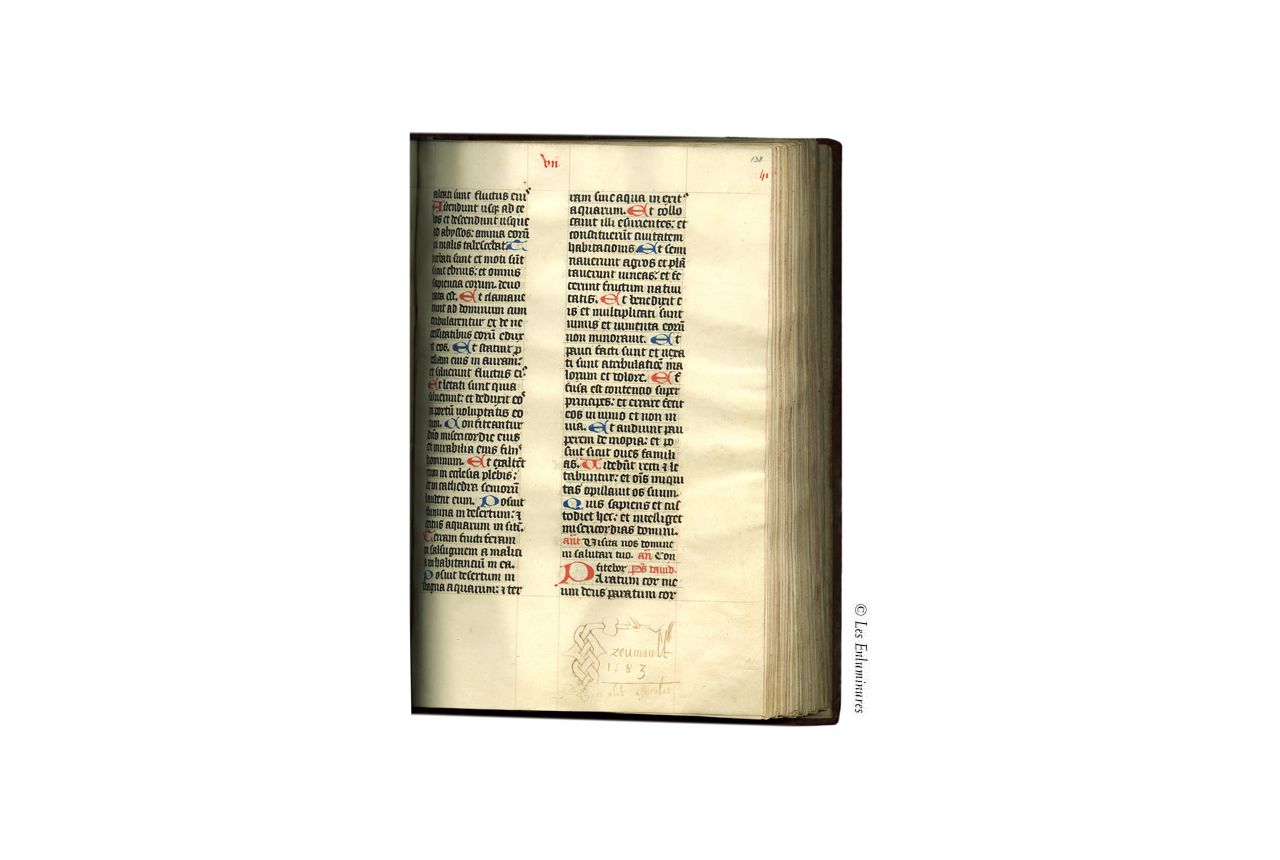 vii
138
altati sunt fluctus eiꝰ
Ascendunt usqꝫ ad ce
los et descendunt usque
ad abyssos: anima eorū
in malis tabescebat. T
urbati sunt et moti sūt
sicut ebrius: et omnis
sapientia eorum devo
rata est. Et clamave
runt ad dominum cum
tribularentur et de ne
cessitatibus eorū edux
it eos. Et statuit ꝓ
cellam eius in auram:
et siluerunt fluctus eiꝰ
Et letati sunt quia
siluerunt: et deduxit eoˢ
in portū voluptatis eo
rum. Confiteantur
dn̄o misericordie eius
et mirabilia eius filiiˢ
hominum. Et exaltēt
eum in ecclesia plebis:
et in cathedra seniorū
laudent eum. Posuit
flumina in desertum: ⁊
exitus aquarum in sitī.
Terram fructiferam
in salsuginem a malici
a inhabitanciū in ea.
Posuit desertum in
stagna aquarum: ⁊ ter
ram sine aqua in exitˢ
aquarum. Et collo
cavit illi esurientes: et
constituerūt civitatem
habitationis. Et semi
naverunt agros et plā
taverunt vineas: et fe
cerunt fructum nativi
tatis. Et benedixit e
is et multiplicati sunt
nimis et iumenta eorū
non minoravit. Et
pauci facti sunt et vexa
ti sunt a tribulatiōe ma
lorum et dolore. Et f
fusa est contencio super
principes: et errare fecit
eos in invio et non in
via. Et audiunt pau
perem de inopia: et po
suit sicut oves famili
as. Videbūt recti ⁊ le
tabuntur: et oīs iniqui
tas opillavit os suum.
Quis sapiens et cus
todiet hec: et intelliget
misericordias domini.
an̄t Visita nos domine
in salutari tuo. an̄ Con
fitebor pˢ david.
Paratum cor me
um deus paratum cor
zeumault
1583
© Les Enluminures